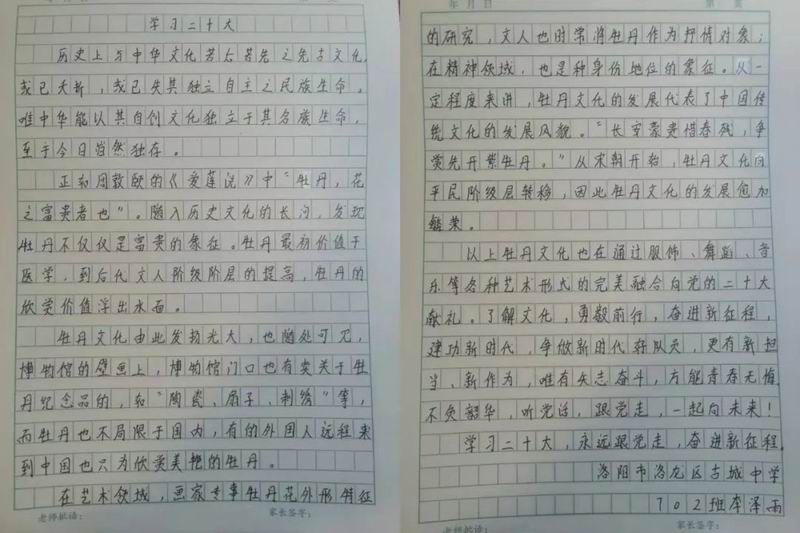 学习二十大
历史上与中华文化若后若先之先古文化,
或已夭折,或已失其独立自主之民族生命。
唯中华能以其自创文化独立于其名族生命,
至于今日岿然独存。
正如周敦颐的《爱莲说》中“牡丹,花
之富贵者也”。随入历史文化的长河,发现
牡丹不仅仅是富贵的象征。牡丹最初价值于
医学,到后代文人阶级阶层的提高,牡丹的
欣赏价值浮出水面。
牡丹文化由此发扬光大,也随处可见,
博物馆的壁画上,博物馆门口也有卖关于牡
丹纪念品的,如“陶瓷、扇子、刺绣”等,
而牡丹也不局限于国内,有的外国人远程来
到中国也只为欣赏美艳的牡丹。
在艺术领域,画家专事牡丹花外形特征
老师批语: 家长签字:
年 月 日 第 页
的研究,文人也时常将牡丹作为抒情对象;
在精神领域,也是种身份地位的象征。从一
定程度来讲,牡丹文化的发展代表了中国传
统文化的发展风貌。“长安豪贵惜春残,争
赏先开紫牡丹。”从宋朝开始,牡丹文化向
平民阶级层转移,因此牡丹文化的发展愈加
繁荣。
以上牡丹文化也在通过服饰、舞蹈、音
乐等各种艺术形式的完美融合向党的二十大
献礼。了解文化,勇毅前行,奋进新征程,
建功新时代,争做新时代好队员,更有新担
当、新作为,唯有矢志奋斗,方能青春无悔
不负韶华,听党话,跟党走,一起向未来!
学习二十大,永远跟党走,奋进新征程
洛阳市洛龙区古城中学
702班李泽雨
老师批语: 家长签字: